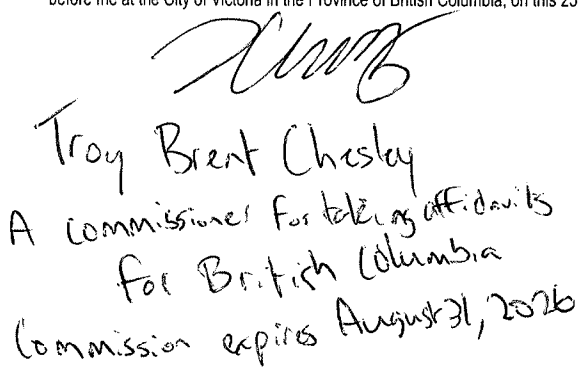 before me at the City of Victoria in the Province of British Columbia, on this 25
Troy Brent Chesley
A commissioner for taking affidavits
for British Columbia
Commission expires August 31, 2026